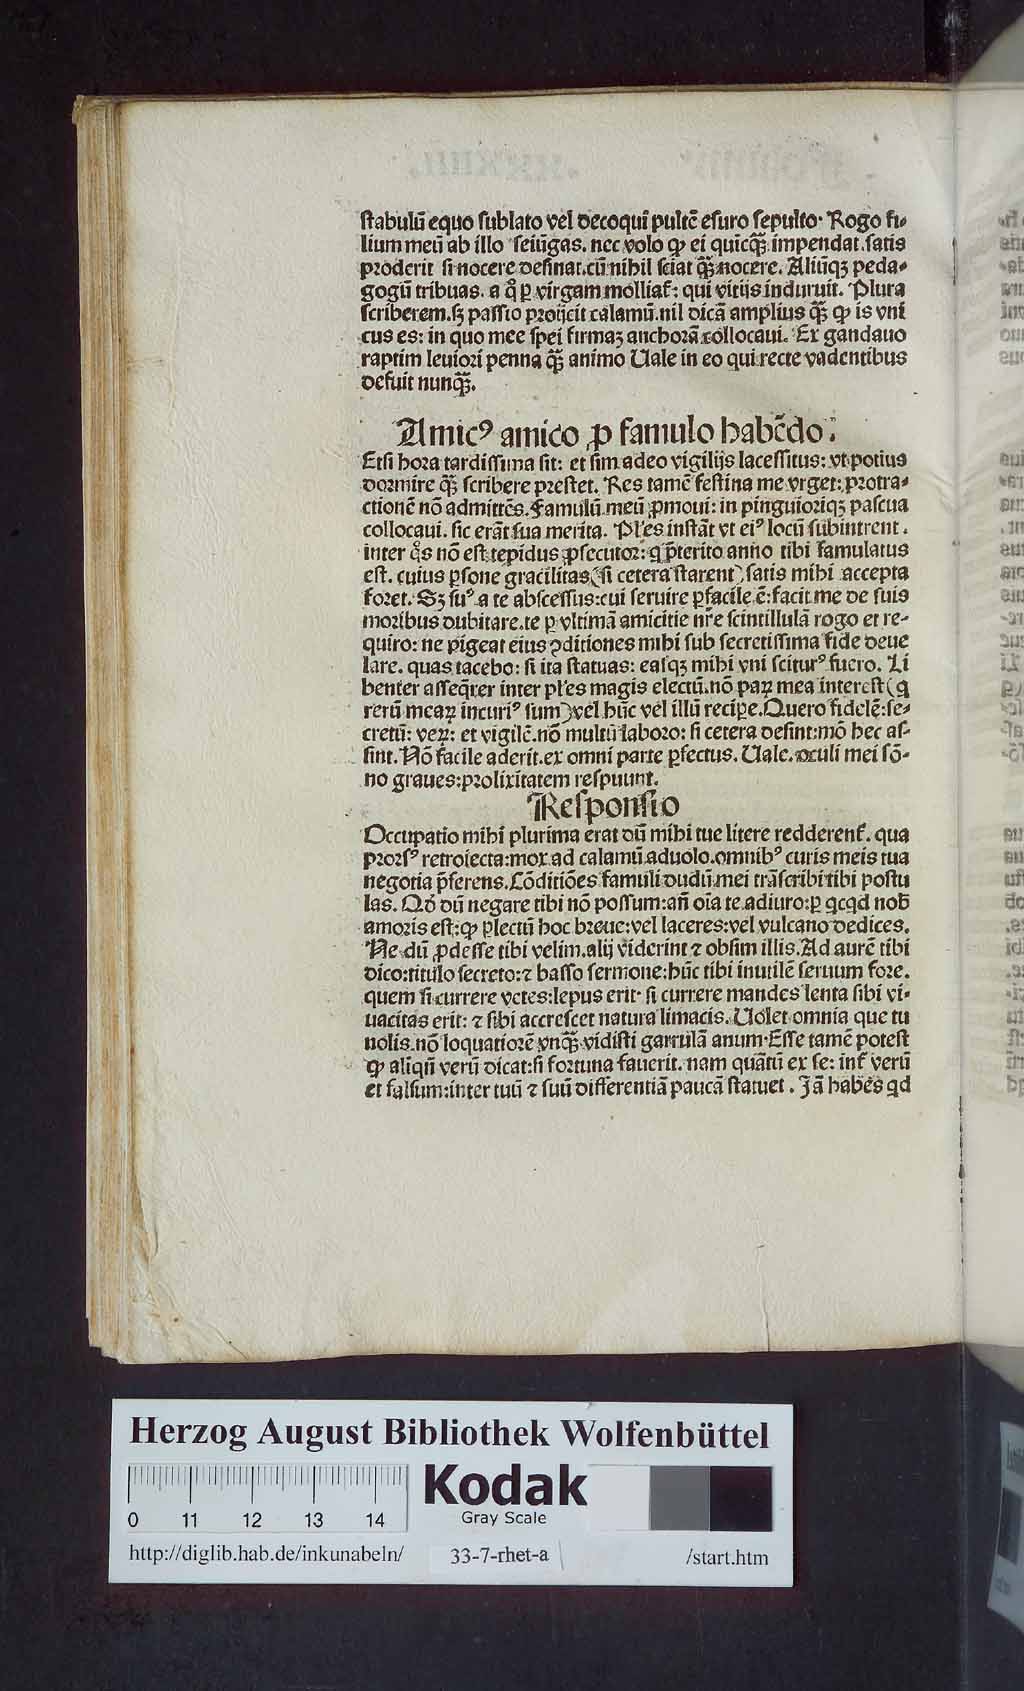 stabulū equo sublato vel decoqui pultē esuro sepulto· Rogo fi-
lium meū ab illo seiūgas. nec volo ꝙ ei quicqꝫ impendat. satis
proderit si nocere desinat. cū nihil sciat qꝫ nocere. Aliūqꝫ peda-
gogū tribuas. a qͦ ꝑ virgam molliat᷑: qui vitijs induruit. Plura
scriberem. sꝫ passio proijcit calamū. nil dicā amplius qꝫ ꝙ is vni
cus es: in quo mee spei firmaꝫ anchorā collocaui. Ex gandauo
raptim leuiori penna qꝫ animo Uale in eo qui recte vadentibus
defuit nunqꝫ.
Amicꝰ amico ꝓ famulo habēdo.
Etsi hora tardissima sit: et sim adeo vigilijs lacessitus: vt potius
dormire qꝫ scribere prestet. Res tamē festina me vrget: protra-
ctionē nō admittēs. Famulū meū ꝓmoui: in pinguioriqꝫ pascua
collocaui. sic erāt sua merita. Pl'es instāt vt eiꝰ locū subintrent.
inter qͦs nō est tepidus ꝓsecutor: q p̄terito anno tibi famulatus
est. cuius ꝑsone gracilitas (si cetera starent) satis mihi accepta
foret. Sꝫ suꝰ a te abscessus: cui seruire ꝑfacile ē: facit me de suis
moribus dubitare. te ꝑ vltimā amicitie nr̄e scintillulā rogo et re-
quiro: ne pigeat eius ꝯditiones mihi sub secretissima fide deue
lare. quas tacebo: si ita statuas: easqꝫ mihi vni sciturꝰ fuero. Li
benter asseq̄rer inter pl'es magis electū. nō paꝝ mea interest (q
rerū meaꝝ incuriꝰ sum) vel hūc vel illū recipe. Quero fidelē: se-
cretū: veꝝ: et vigilē. nō multū laboro: si cetera desint: mō hec as-
sint. Nō facile aderit. ex omni parte ꝑfectus. Uale. oculi mei sō-
no graues: prolixitatem respuunt.
Responsio
Occupatio mihi plurima erat dū mihi tue litere redderent᷑. qua
prorsꝰ retroiecta: mox ad calamū aduolo. omnibꝰ curis meis tua
negotia p̄ferens. Cōditiōes famuli dudū mei trāscribi tibi postu
las. Qd̄ dū negare tibi nō possum: an̄ oīa te adiuro: ꝑ qcqd nob̄
amoris est: ꝙ ꝑlectū hoc breue: vel laceres: vel vulcano dedices.
Ne dū ꝓdesse tibi velim. alij viderint ⁊ obsim illis. Ad aurē tibi
dico: titulo secreto: ⁊ basso sermone: hūc tibi inutilē seruum fore.
quem si currere vetes: lepus erit· si currere mandes lenta sibi vi-
uacitas erit: ⁊ sibi accrescet natura limacis. Uolet omnia que tu
nolis. nō loquatiorē vnqꝫ vidisti garrulā anum· Esse tamē potest
ꝙ aliqn̄ verū dicat: si fortuna fauerit. nam quātū ex se: int᷑ verū
et falsum: inter tuū ⁊ suū differentiā paucā statuet. Jā habes qd
Herzog August Bibliothek Wolfenbüttel
Kodak
Gray Scale
0 11 12 13 14
http://diglib.hab.de/inkunabeln/ 33-7-rhet-a /start.htm